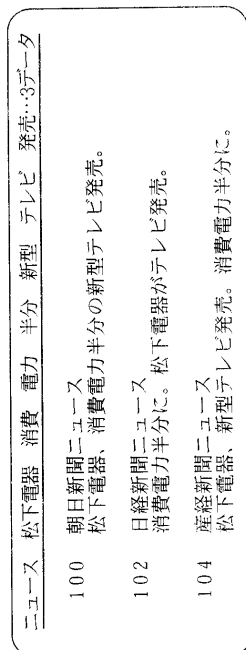 ニュース 松下電器 消費 電力 半分 新型 テレビ 発売…3データ
100 朝日新聞ニュース
松下電器、消費電力半分の新型テレビ発売。
102 日経新聞ニュース
消費電力半分に。松下電器がテレビ発売。
104 産経新聞ニュース
松下電器、新型テレビ発売。消費電力半分に。